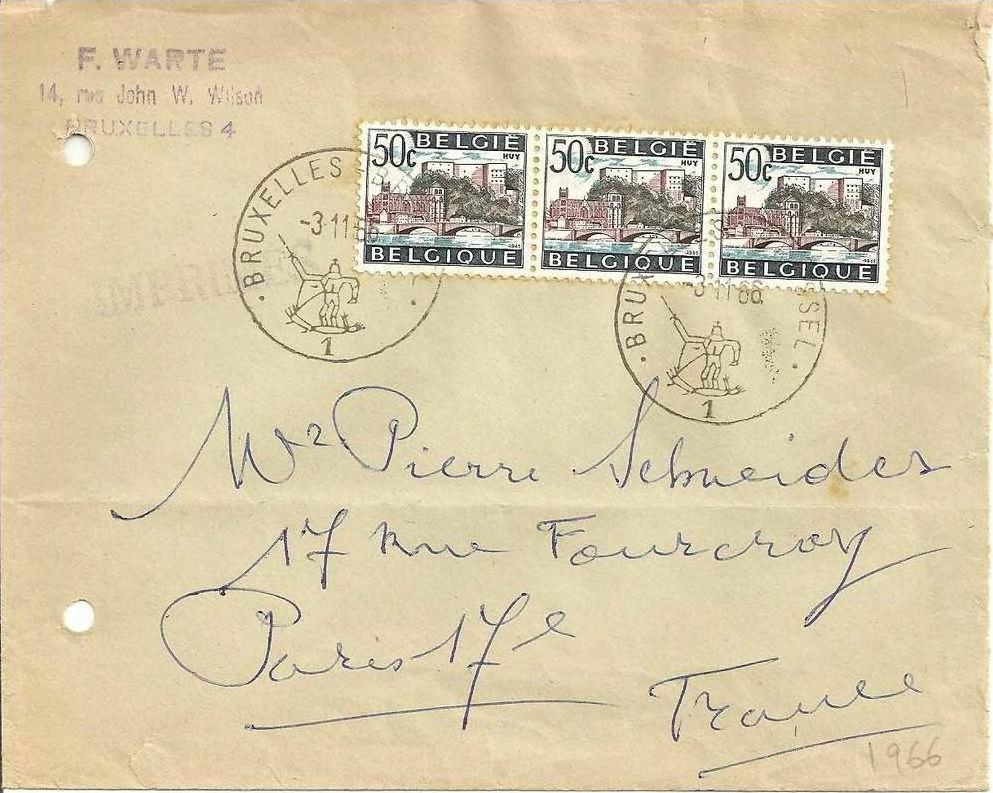 F. WARTE
14, rue John W. Wilson
BRUXELLES 4
50c BELGIË
HUY
BELGIQUE
50c BELGIË
HUY
BELGIQUE
50c BELGIË
HUY
BELGIQUE
BRUXELLES
-3-11 66
1
BRUX SSEL
-3-11 66
1
Mr Pierre Schneider
17 rue Fourcroy
Paris 17e
France
1966